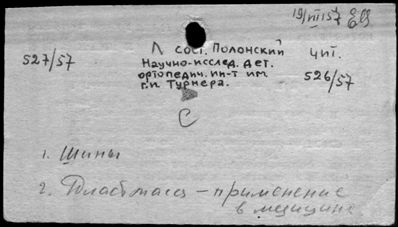 19/VIII 57
527/57
Л сост. Полонский чит.
Научно-исслед. дет.
ортопедич. ин-т им. 526/57
г.и. Турнера.
С
1. Шины
2. Пластмасс – применение
в медицине